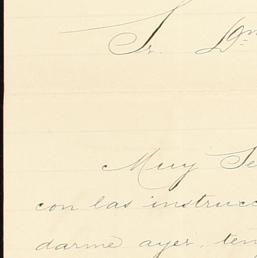 Sr. Dn
Muy Se
con las instrucc
darme ayer, ten